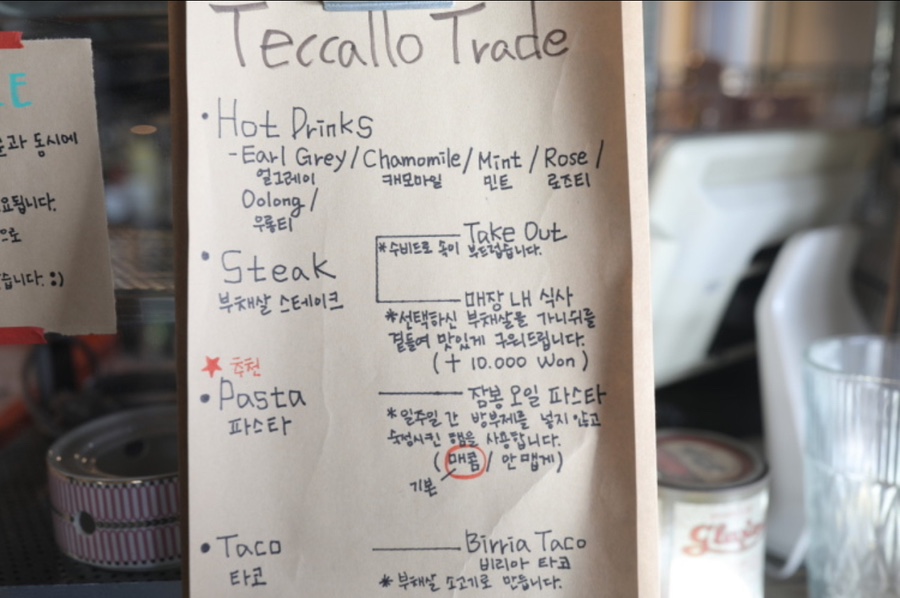 Teccallo Trade
• Hot Drinks
- Earl Grey / Chamomile / Mint / Rose /
얼그레이 캐모마일 민트 로즈티
Oolong /
우롱티
• Steak
부채살 스테이크
Take Out
*수비드로 속이 부드럽습니다.
매장 내 식사
*선택하신 부채살을 가니쉬를
곁들여 맛있게 구워드립니다.
(+ 10.000 Won)
★ 추천
• Pasta
파스타
잠봉 오일 파스타
*일주일 간 방부제를 넣지 않고
숙성시킨 햄을 사용합니다.
(매콤 / 안 맵게)
기본
• Taco
타코
Birria Taco
비리아 타코
* 부채살 소고기로 만듭니다.
E
과 동시에
됩니다.
으로
습니다. :)